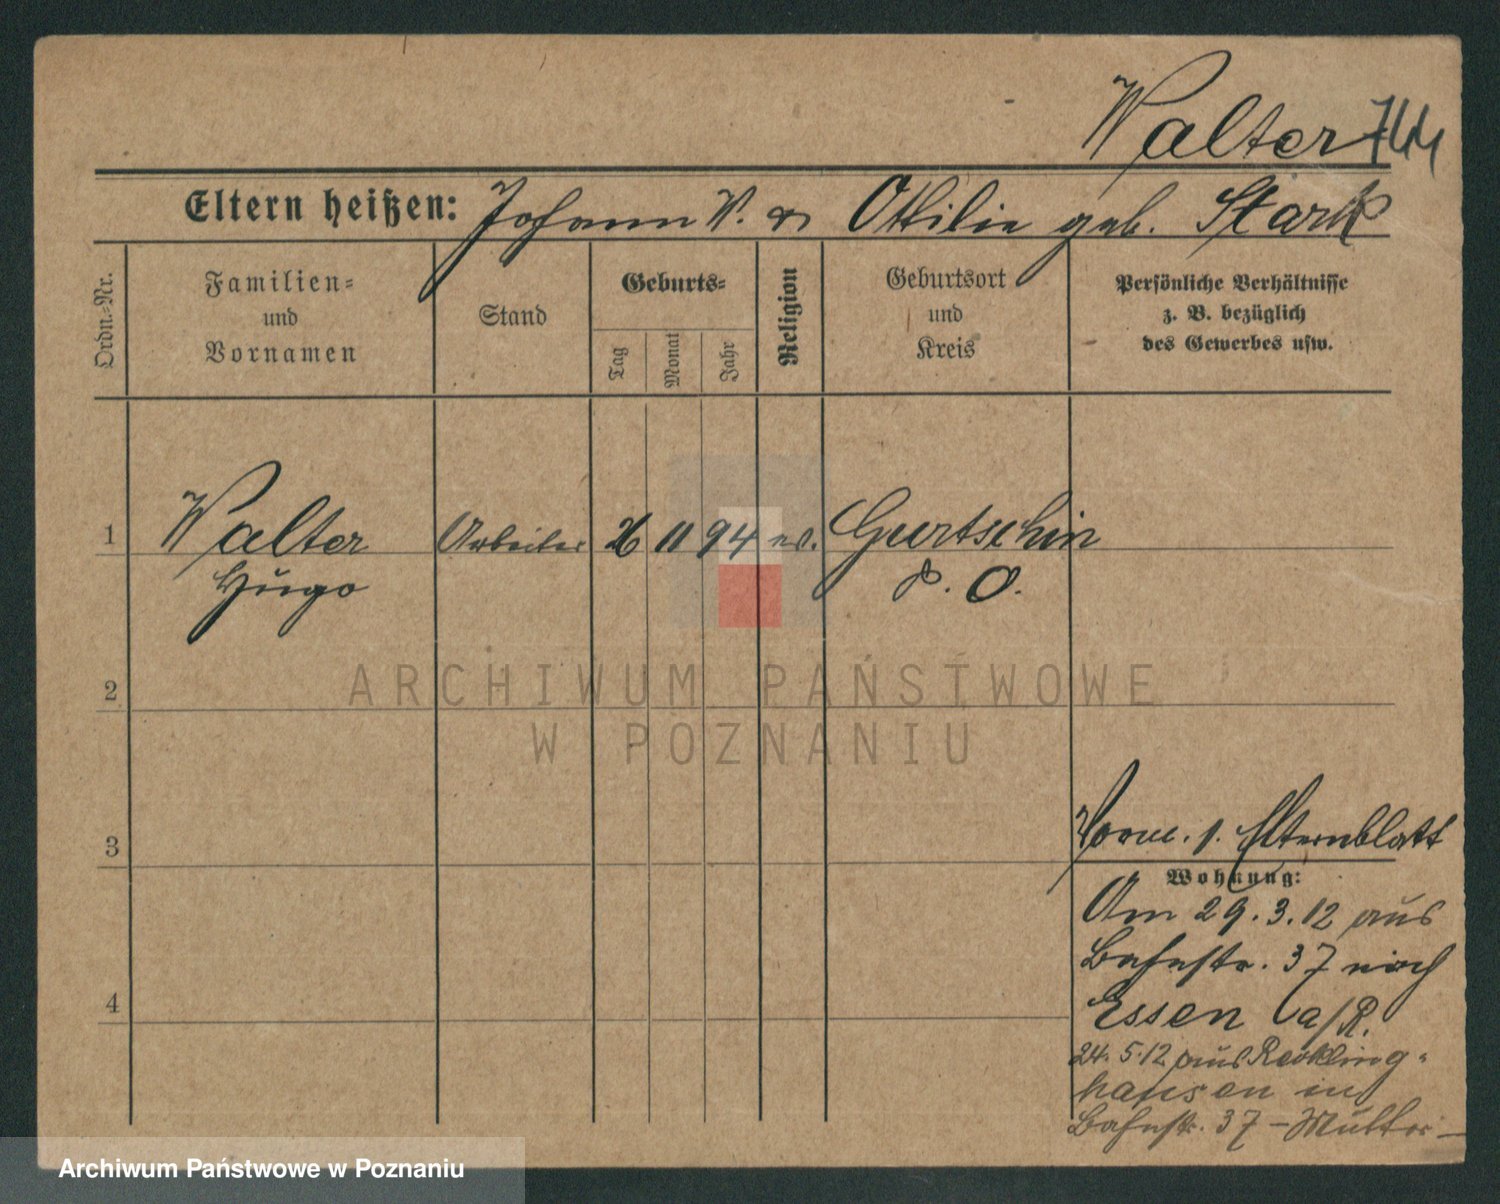 Walter 744
Eltern heißen: Johann W. u Ottilie geb. Stark
Ordn.-Nr.
Familien-
und
Vornamen
Stand
Geburts-
Tag
Monat
Jahr
Religion
Geburtsort
und
Kreis
Persönliche Verhältnisse
z. B. bezüglich
des Gewerbes usw.
1 Walter Arbeiter 26 11 94 ev. Gurtschin
Hugo P. O.
2
ARCHIWUM PAŃSTWOWE
W POZNANIU
3
Vorm. s. Elternblatt
Wohnung:
Am 29.3.12 aus
Bahnstr. 37 nach
Essen a/R.
4
24.5.12 aus Reckling-
hausen in
Bahnstr. 37 - Mutter -
Archiwum Państwowe w Poznaniu